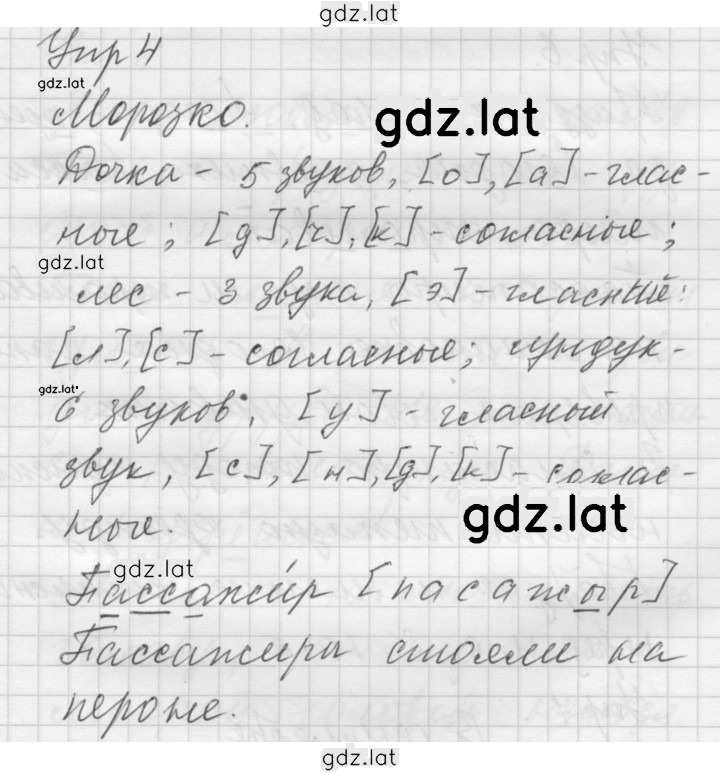 gdz.lat
Упр 4
gdz.lat
Морозко.
gdz.lat
Дочка - 5 звуков, [о], [а] - глас-
ные; [д], [ч], [к] - согласные;
gdz.lat
лес - 3 звука, [э] - гласный:
[л], [с] - согласные; сундук-
gdz.lat
6 звуков, [у] - гласный
звук, [с], [н], [д], [к] - соглас-
ные.
gdz.lat
gdz.lat
Пассажи́р [пасажыр]
Пассажиры стояли на
пероне.
gdz.lat